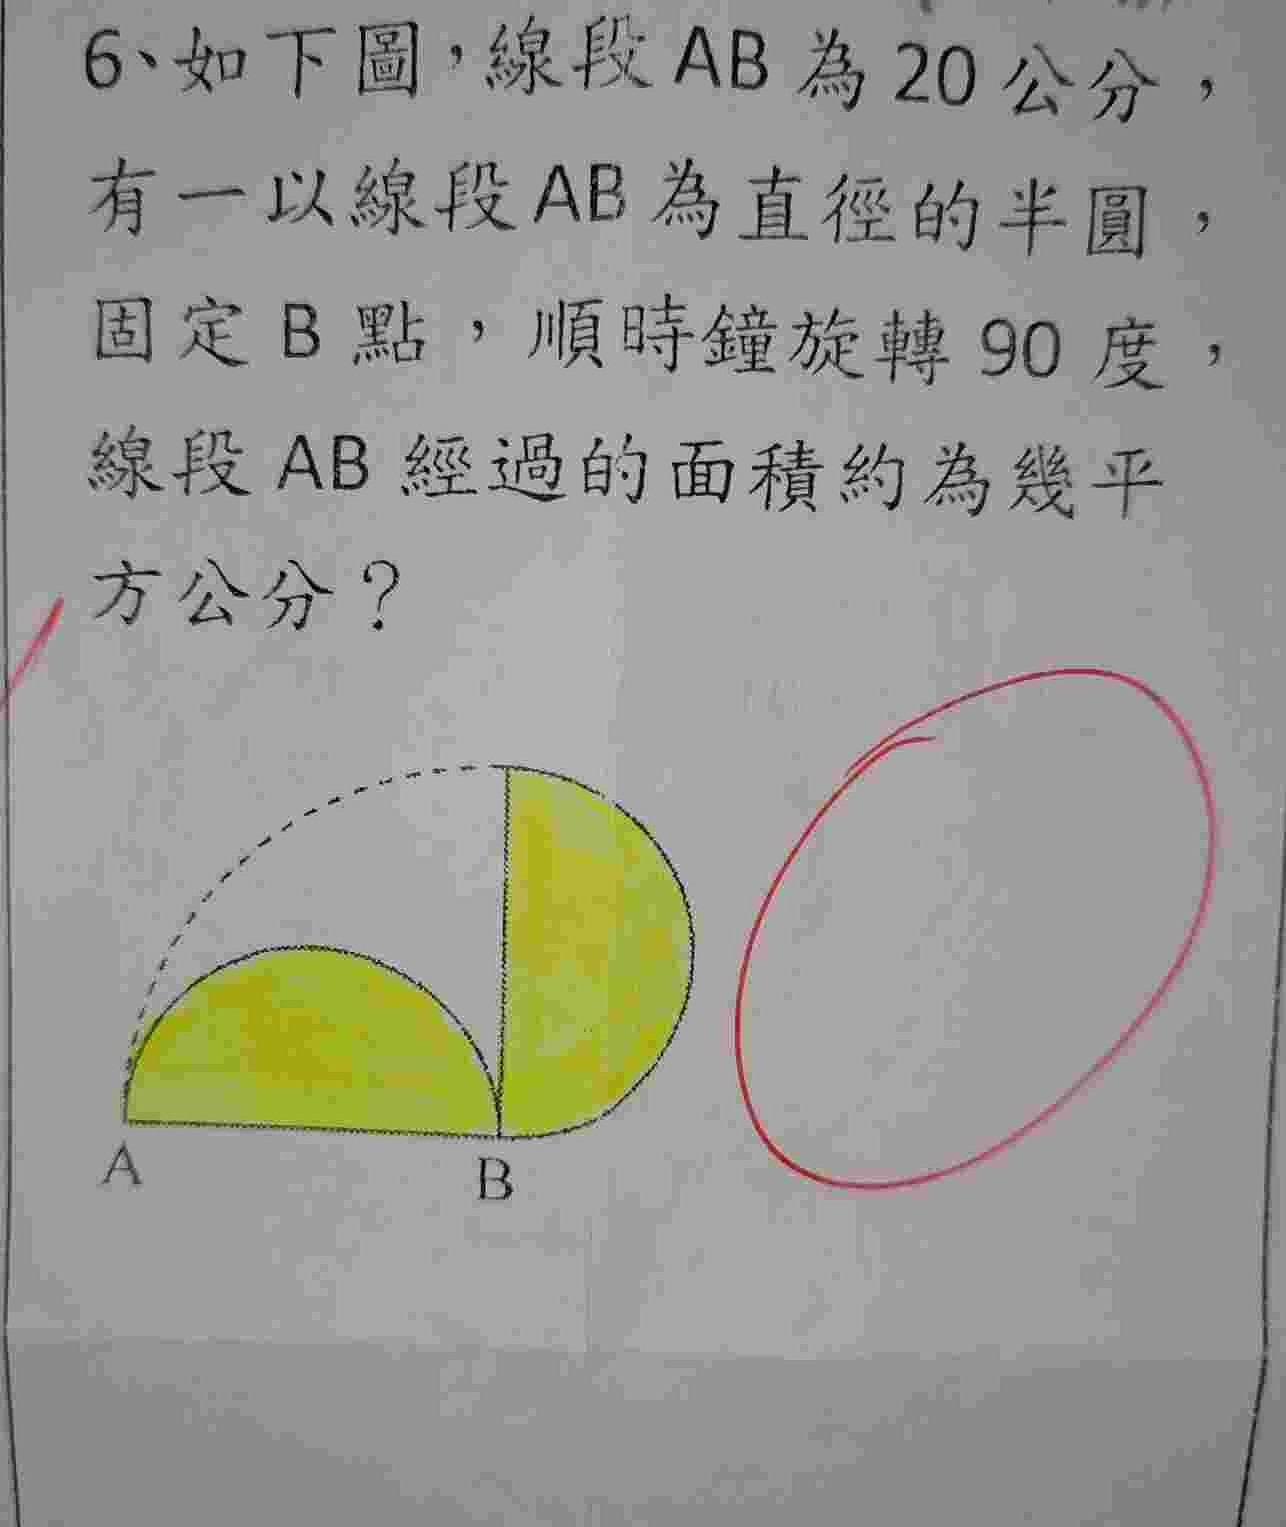 6、如下圖，線段AB為20公分，
有一以線段AB為直徑的半圓，
固定B點，順時鐘旋轉90度，
線段AB經過的面積約為幾平
方公分？
A
B